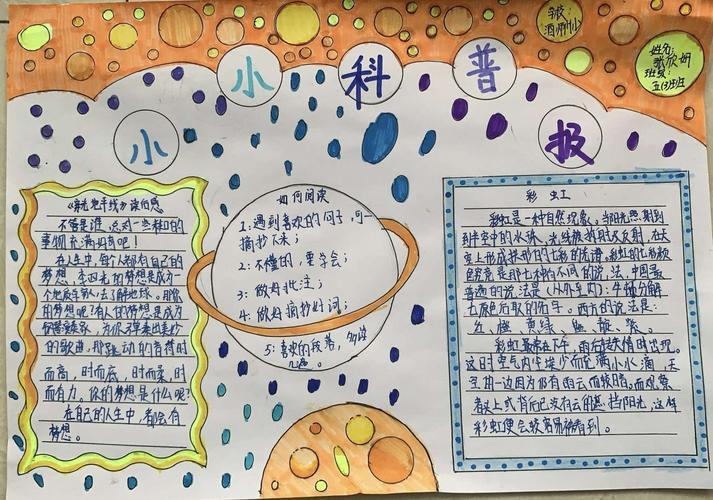 小小科普报
学校:
姓名:
张欣妍
班级:
五(3)班
读后感
不管是谁,总对一些神秘的
事物充满好奇吧!
在人生中,每个人都有自己的
梦想,李四光的梦想是成为一
个地质学家,去了解地球。那你
的梦想呢?有人的梦想是成为
钢琴演奏家,为你弹奏出美妙
的歌曲,那跳动的音符时
而高,时而底,时而柔,时
而有力。你的梦想是什么呢?
在自己的人生中,都会有
梦想。
如何阅读
1:遇到喜欢的句子,可一
摘抄下来;
2:不懂的,要学会;
3:做好批注;
4:做好摘抄好词;
5:喜欢的段落,多读
几遍。
彩虹
彩虹是一种自然现象。当阳光照射到
半空中的水珠,光线被折射及反射,在天
空上形成拱形的七彩的光谱。彩虹的七彩颜
色究竟是那七种,有不同的说法,中国最
普遍的说法是(从外至内):
七原色所取的句年。西方的说法是:
红 橙 黄 绿 蓝 靛 紫。
彩虹最常在下午,雨后转天晴时出现。
这时空气内尘埃少而充满小水滴,天
空的一边因为仍有雨云而较暗。而观察
者头上或背后已没有云的遮挡阳光,这样
彩虹便会较容易被看到。